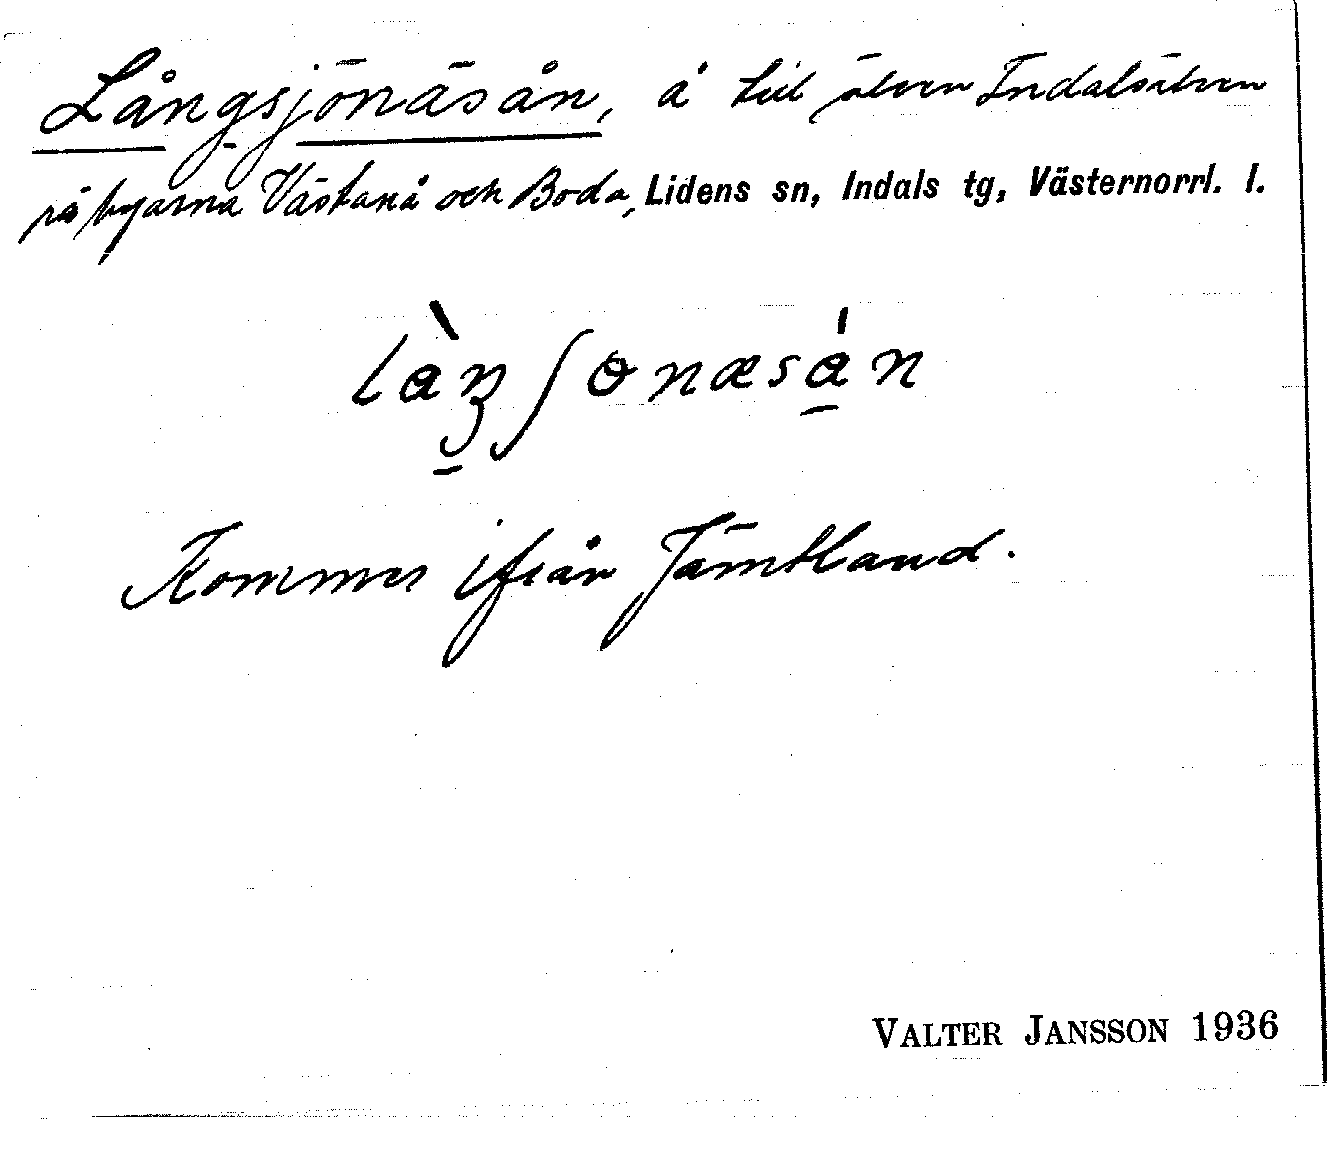 Långsjönäsån, å till älven Indalsälven
på byarna Västanå och Boda, Lidens sn, Indals tg, Västernorrl. l.
Kommer ifrån Jämtland.
VALTER JANSSON 1936